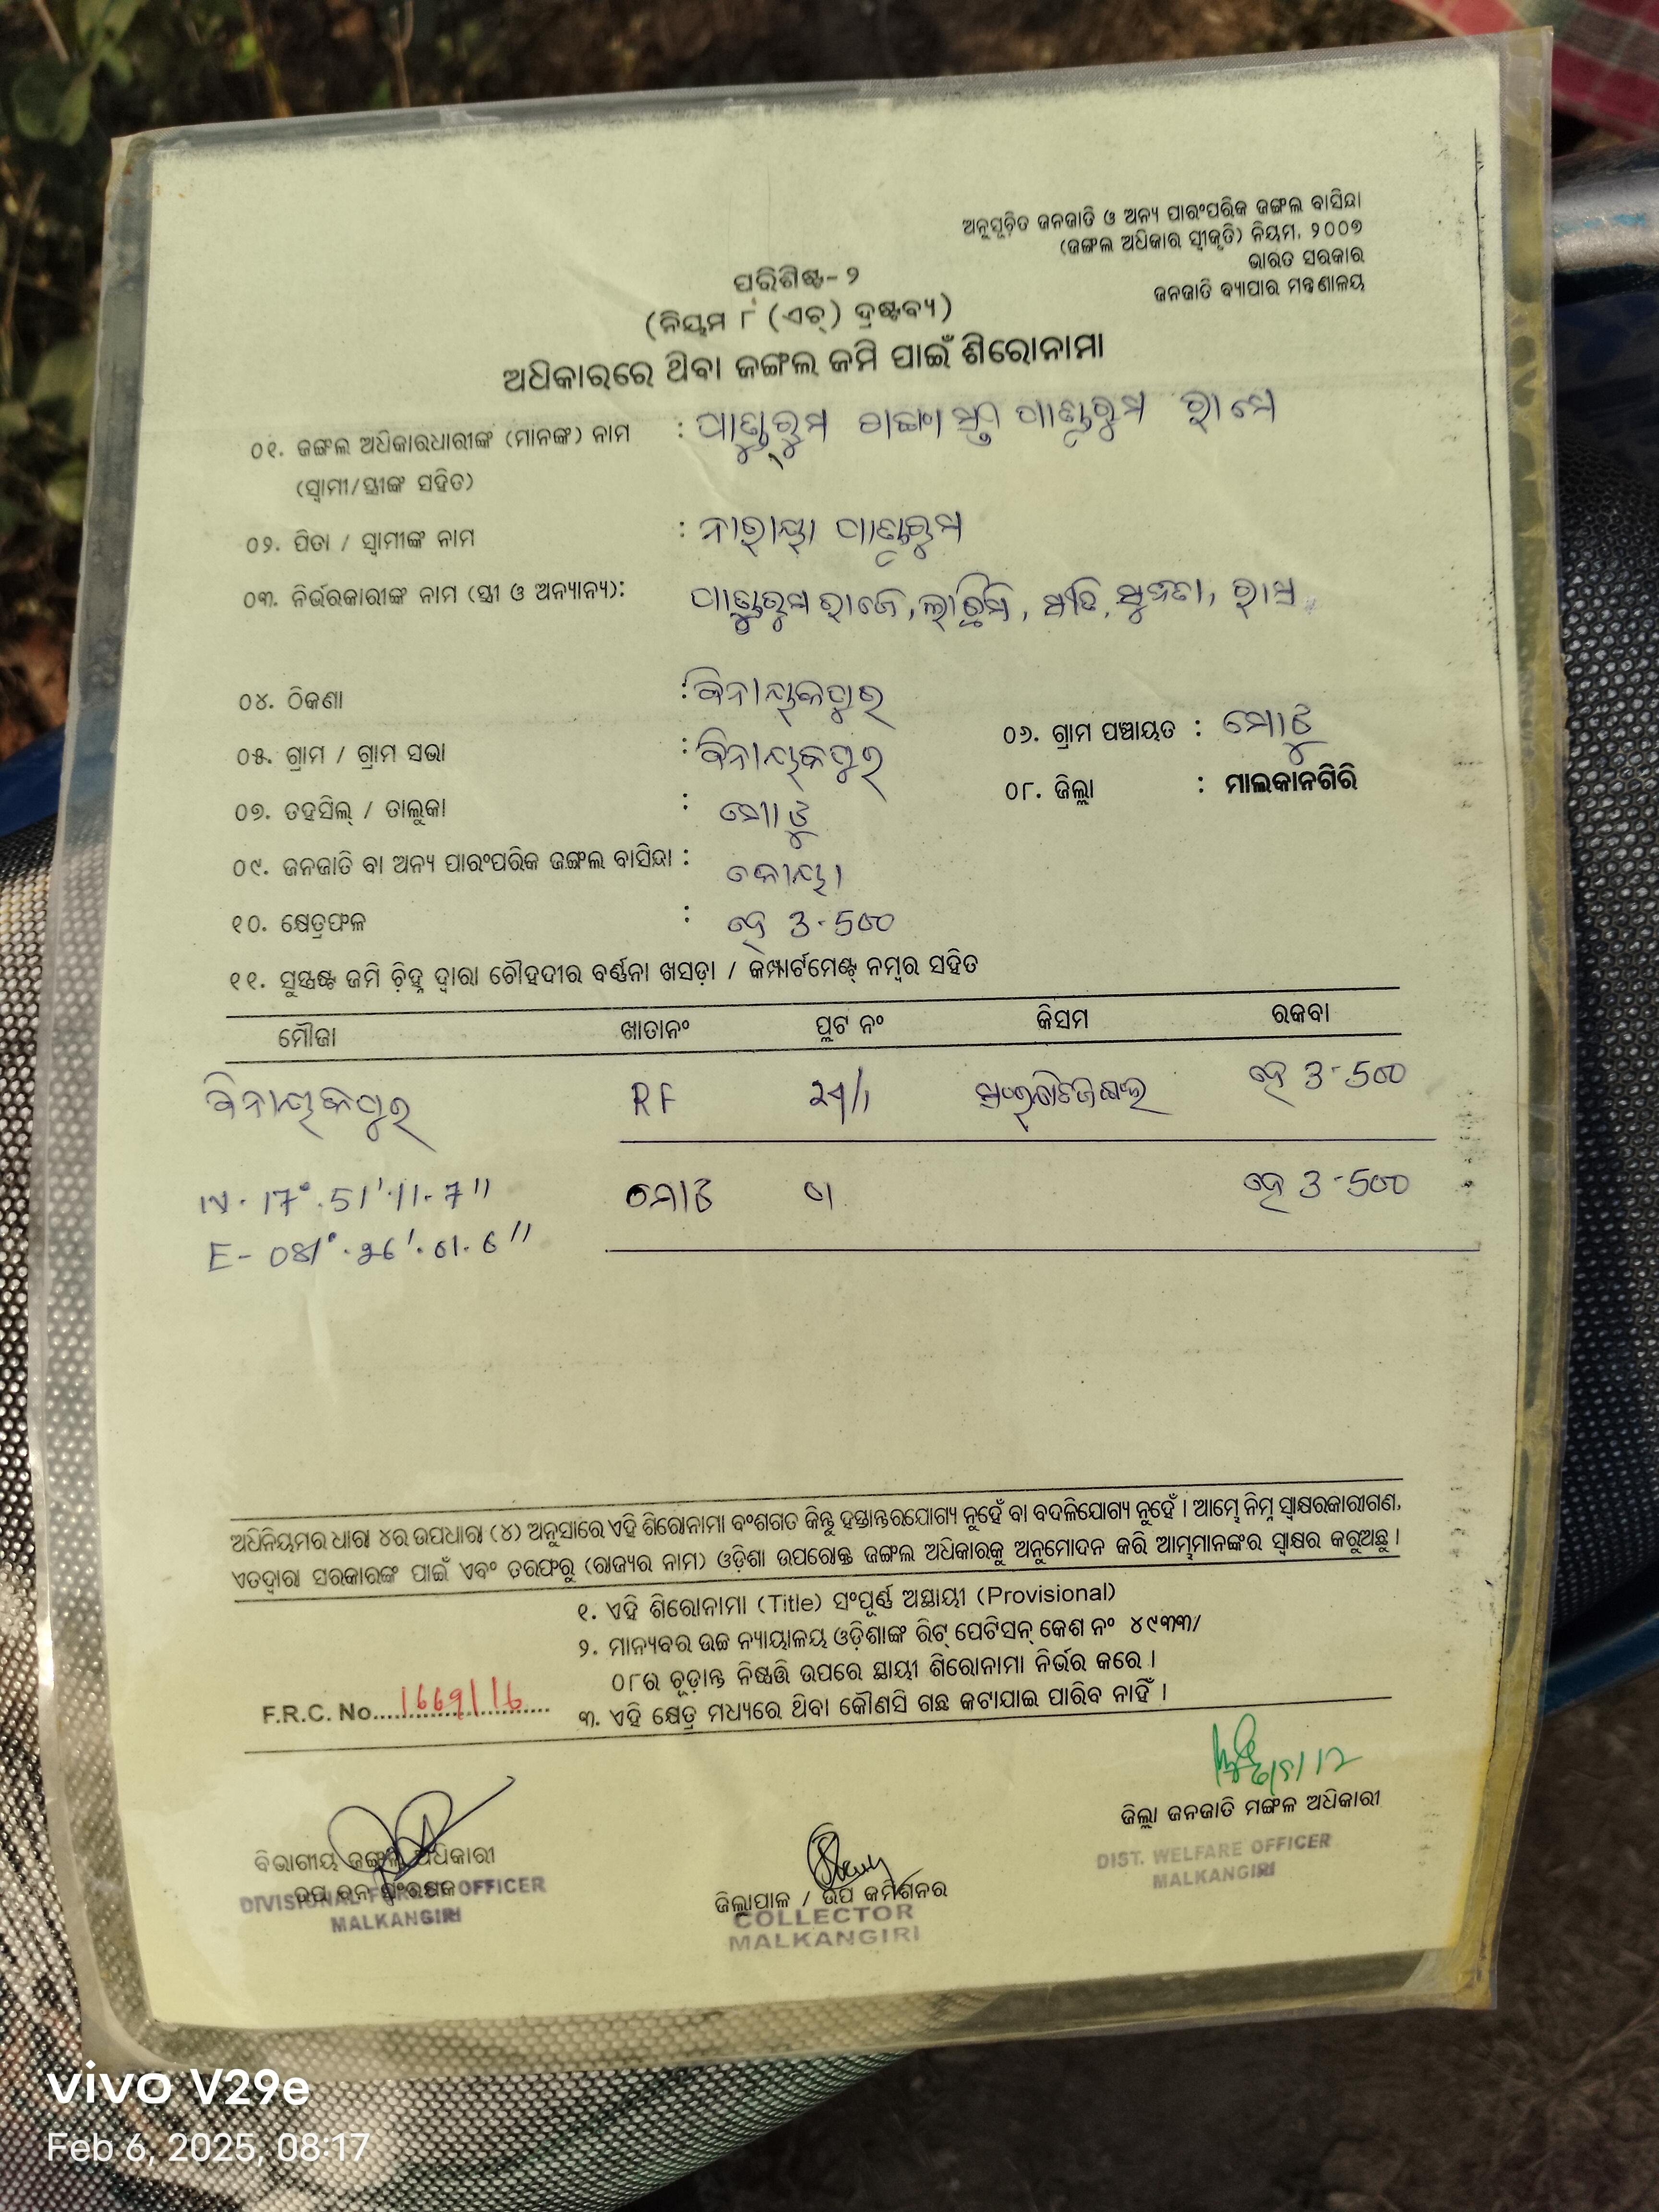 ଅନୁସୂଚିତ ଜନଜାତି ଓ ଅନ୍ୟ ପାରଂପରିକ ଜଙ୍ଗଲ ବାସିନ୍ଦା
(ଜଙ୍ଗଲ ଅଧିକାର ସ୍ୱୀକୃତି) ନିୟମ, ୨୦୦୭
ଭାରତ ସରକାର
ଜନଜାତି ବ୍ୟାପାର ମନ୍ତ୍ରଣାଳୟ
ପରିଶିଷ୍ଟ-୨
(ନିୟମ ୮ (ଏଚ୍) ଦ୍ରଷ୍ଟବ୍ୟ)
ଅଧିକାରରେ ଥିବା ଜଙ୍ଗଲ ଜମି ପାଇଁ ଶିରୋନାମା
୦୧. ଜଙ୍ଗଲ ଅଧିକାରଧାରୀଙ୍କ (ମାନଙ୍କ) ନାମ :
(ସ୍ୱାମୀ/ସ୍ତ୍ରୀଙ୍କ ସହିତ)
୦୨. ପିତା / ସ୍ୱାମୀଙ୍କ ନାମ :
୦୩. ନିର୍ଭରକାରୀଙ୍କ ନାମ (ସ୍ତ୍ରୀ ଓ ଅନ୍ୟାନ୍ୟ):
୦୪. ଠିକଣା : ବିନାୟକପୁର
୦୫. ଗ୍ରାମ / ଗ୍ରାମ ସଭା : ବିନାୟକପୁର
୦୬. ଗ୍ରାମ ପଞ୍ଚାୟତ : ମୋଟୁ
୦୭. ତହସିଲ୍ / ତାଲୁକା : ମୋଟୁ
୦୮. ଜିଲ୍ଲା : ମାଲକାନଗିରି
୦୯. ଜନଜାତି ବା ଅନ୍ୟ ପାରଂପରିକ ଜଙ୍ଗଲ ବାସିନ୍ଦା : କୋୟା
୧୦. କ୍ଷେତ୍ରଫଳ : ହେ 3-500
୧୧. ସୁସ୍ପଷ୍ଟ ଜମି ଚିହ୍ନ ଦ୍ୱାରା ଚୌହଦୀର ବର୍ଣ୍ଣନା ଖସଡ଼ା / କମ୍ପାର୍ଟମେଣ୍ଟ୍ ନମ୍ବର ସହିତ
ମୌଜା ଖାତାନଂ ପ୍ଲଟ ନଂ କିସମ ରକବା
ବିନାୟକପୁର RF ହେ 3-500
N-17°.51'.11.7" ମୋଟ ହେ 3-500
E-
ଅଧିନିୟମର ଧାରା ୪ର ଉପଧାରା (୪) ଅନୁସାରେ ଏହି ଶିରୋନାମା ବଂଶଗତ କିନ୍ତୁ ହସ୍ତାନ୍ତରଯୋଗ୍ୟ ନୁହେଁ ବା ବଦଳିଯୋଗ୍ୟ ନୁହେଁ । ଆମ୍ଭେ ନିମ୍ନ ସ୍ୱାକ୍ଷରକାରୀଗଣ,
ଏତଦ୍ୱାରା ସରକାରଙ୍କ ପାଇଁ ଏବଂ ତରଫରୁ (ରାଜ୍ୟର ନାମ) ଓଡ଼ିଶା ଉପରୋକ୍ତ ଜଙ୍ଗଲ ଅଧିକାରକୁ ଅନୁମୋଦନ କରି ଆମ୍ଭମାନଙ୍କର ସ୍ୱାକ୍ଷର କରୁଅଛୁ ।
୧. ଏହି ଶିରୋନାମା (Title) ସଂପୂର୍ଣ୍ଣ ଅସ୍ଥାୟୀ (Provisional)
୨. ମାନ୍ୟବର ଉଚ୍ଚ ନ୍ୟାୟାଳୟ ଓଡ଼ିଶାଙ୍କ ରିଟ୍ ପେଟିସନ୍ କେଶ ନଂ ୪୯୩୩/
୦୮ର ଚୂଡ଼ାନ୍ତ ନିଷ୍ପତ୍ତି ଉପରେ ସ୍ଥାୟୀ ଶିରୋନାମା ନିର୍ଭର କରେ ।
F.R.C. No.
୩. ଏହି କ୍ଷେତ୍ର ମଧ୍ୟରେ ଥିବା କୌଣସି ଗଛ କଟାଯାଇ ପାରିବ ନାହିଁ ।
ଜିଲ୍ଲା ଜନଜାତି ମଙ୍ଗଳ ଅଧିକାରୀ
DIST. WELFARE OFFICER
MALKANGIRI
ବିଭାଗୀୟ ଜଙ୍ଗଲ ଅଧିକାରୀ
ଉପ ବନ ସଂରକ୍ଷକ
DIVISIONAL FOREST OFFICER
MALKANGIRI
ଜିଲ୍ଲାପାଳ / ଉପ କମିଶନର
COLLECTOR
MALKANGIRI
vivo V29e
Feb 6, 2025, 08:17